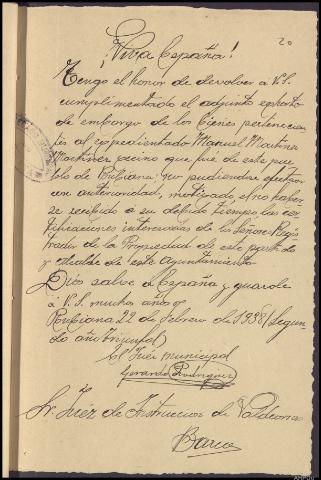 20
¡Viva España!
Tengo el honor de devolver á V.S.
cumplimentado el adjunto exhorto
de embargo de los bienes pertenecien
tes al expedientado Manuel Martinez
Martinez vecino que fué de este pue
blo de Rubiana, no pudiendose efectuar
con anterioridad, motivado al no haber
se recibido a su debido tiempo las cer
tificaciones interesadas de los Señores Regis
trador de la Propiedad de este partido
y Alcalde de este Ayuntamiento.
Dios salve a España y guarde
á V.S. muchos años
Rubiana 22 de Febrero de 1938 (Segun
do año triunfal)
El Juez municipal
Gerardo Rodriguez
Sr. Juez de Instruccion de Valdeorras
Barco